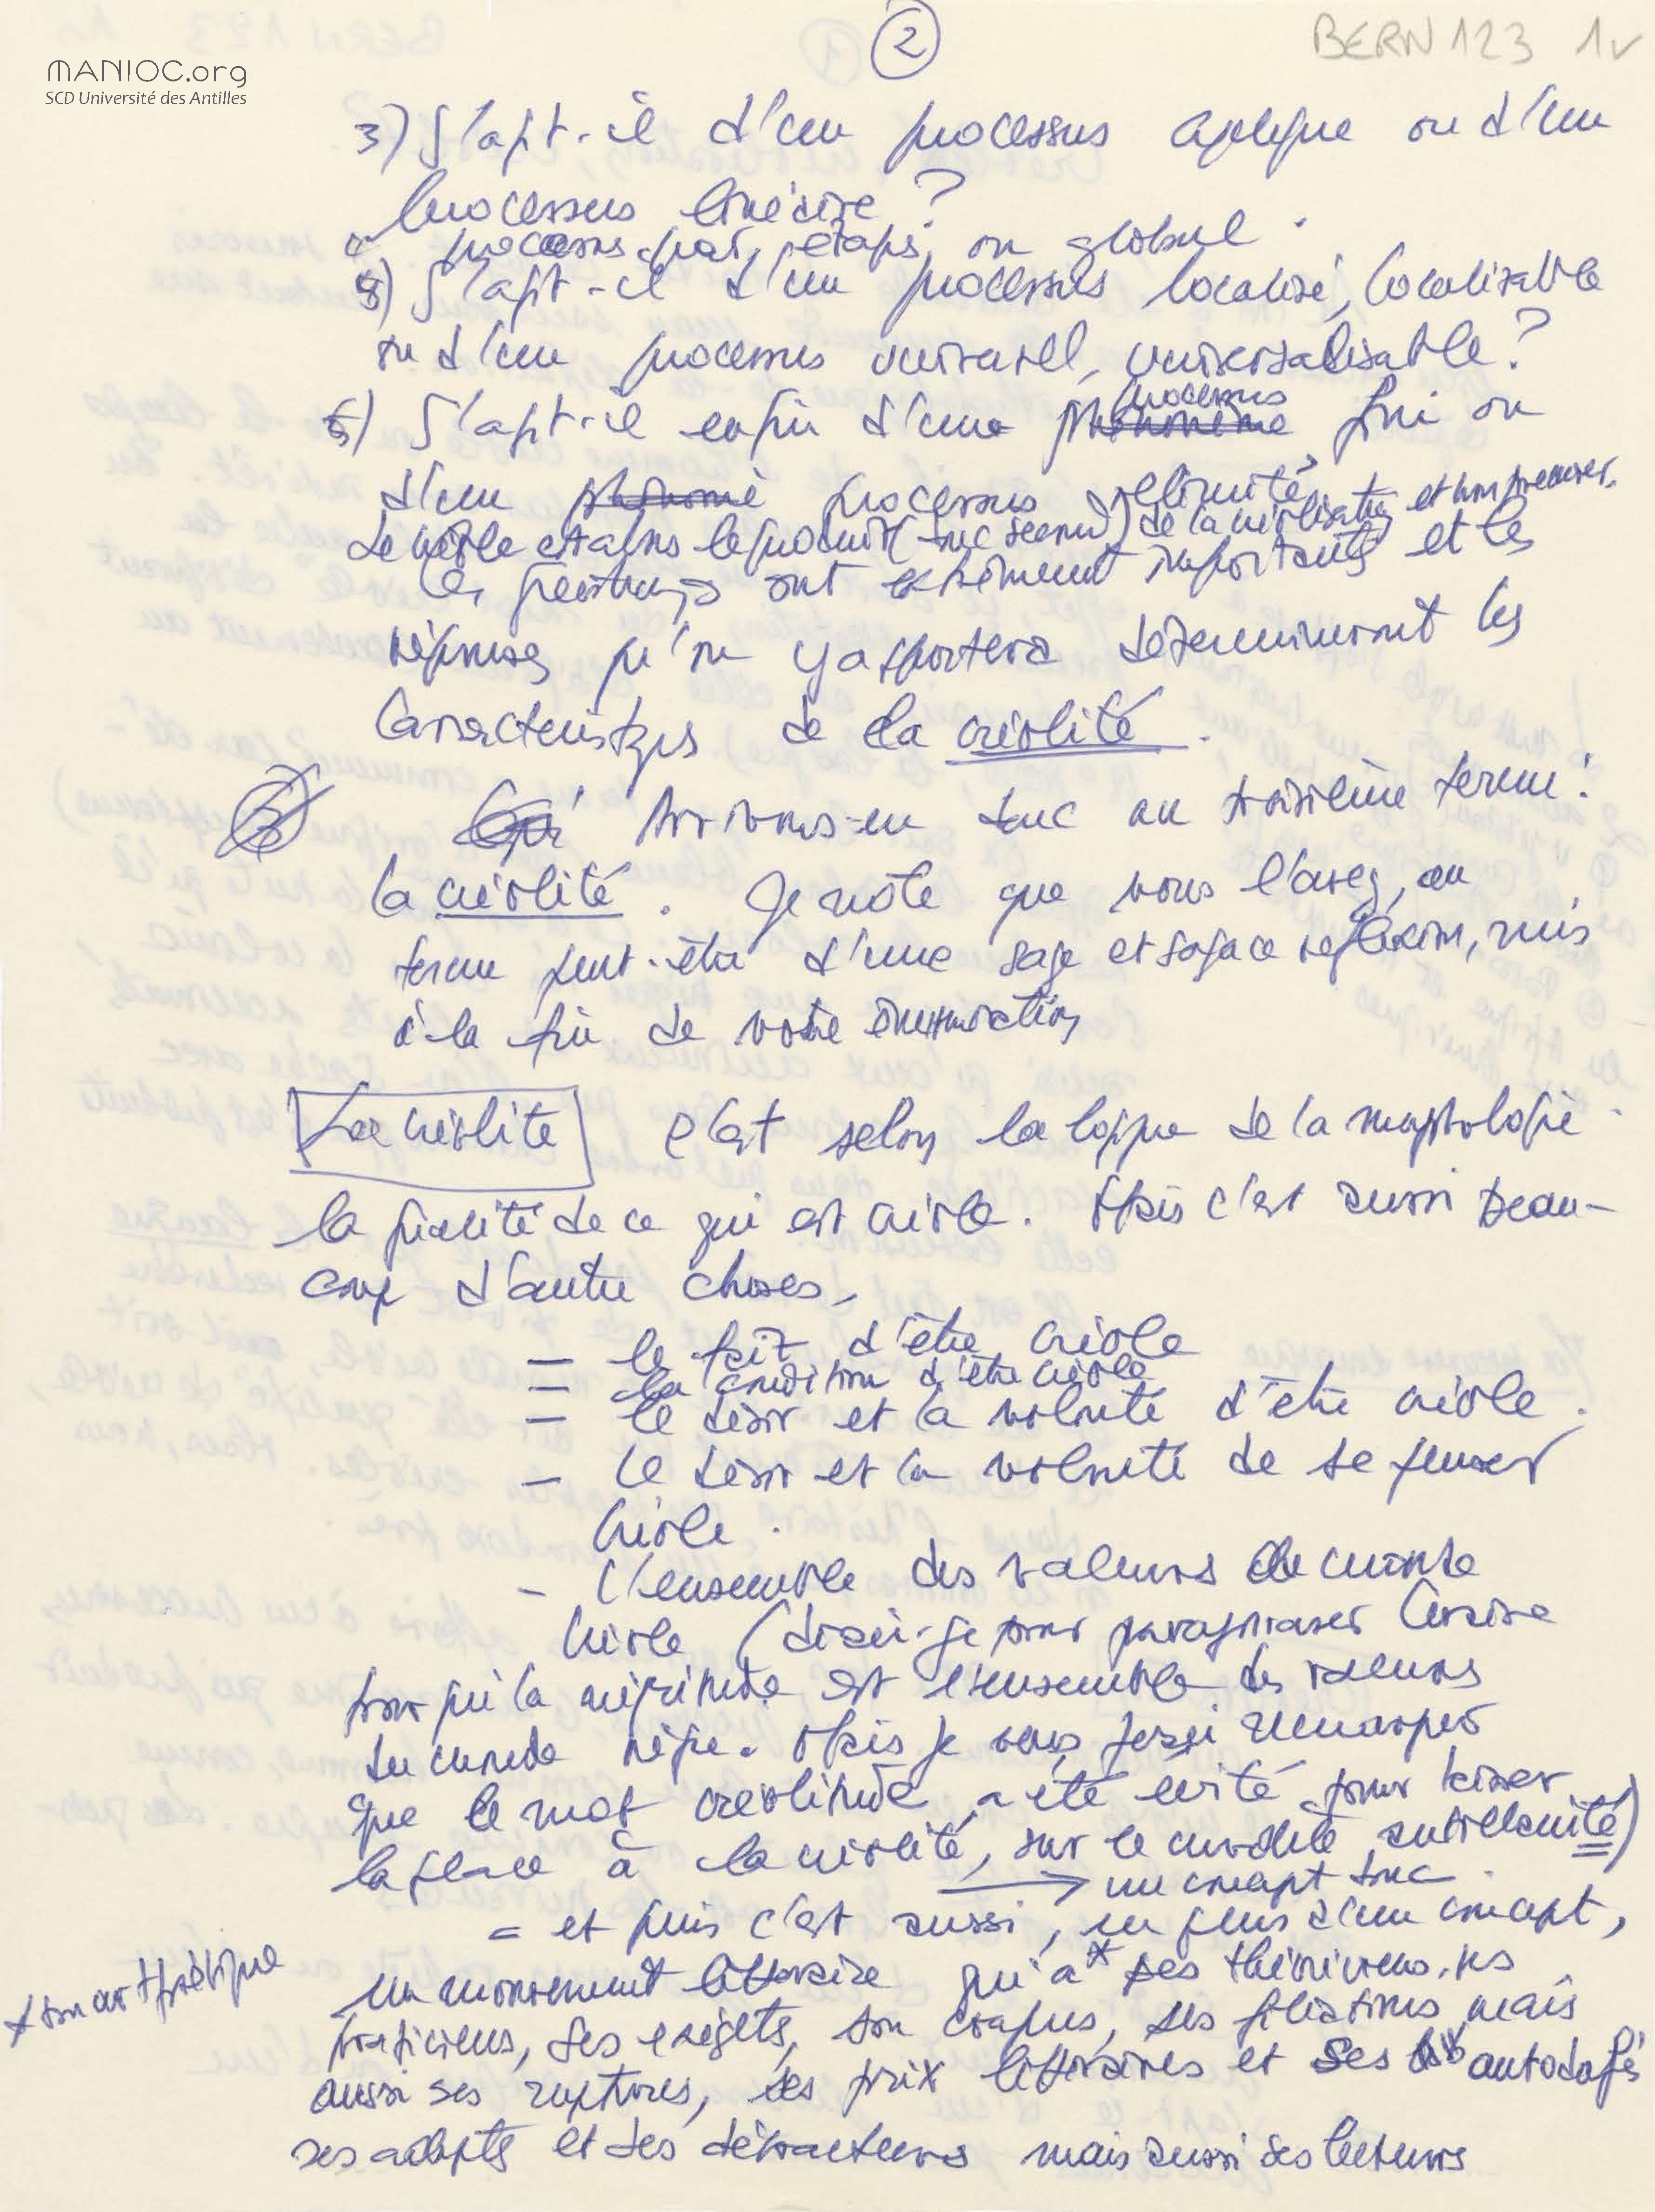 2
BERN 123 1v
MANIOC.org
SCD Université des Antilles
3) S'agit-il d'un processus cyclique ou d'un
processus linéaire ?
processus par étapes, ou global.
4) S'agit-il d'un processus localisé, localisable
ou d'un processus universel, universalisable ?
5) S'agit-il enfin d'un phénomène processus fini ou
d'un phénomè processus illimité,
Le créole est alors le produit (  ) de la créolisation et non premier.
Ces questions sont extrêmement importantes et les
réponses qu'on y apportera détermineront les
caractéristiques de la créolité.
Arrivons-en donc au troisième terme :
la créolité. Je note que vous l'avez, au
terme peut-être d'une sage et sagace réflexion, mis
à la fin de votre énumération
La créolité c'est selon la logique de la morphologie
la qualité de ce qui est créole. Mais c'est aussi beau-
coup d'autre choses,
— le fait d'être créole
— la condition d'être créole
— le désir et la volonté d'être créole.
— le désir et la volonté de se penser
créole.
- l'ensemble des valeurs du monde
créole (dirai-je pour paraphraser Césaire
pour qui la négritude est l'ensemble des valeurs
du monde nègre. Mais je vous ferai remarquer
que le mot créolitude a été évité pour laisser
la place à la créolité, sur le modèle antillanité)
→ un concept donc.
= et puis c'est aussi, en plus d'un concept,
un mouvement littéraire qui a * ses théoriciens, ses
* son art poétique
praticiens, ses exégètes, son corpus, ses filiations, mais
aussi ses ruptures, ses prix littéraires et ses autodafés
ses adeptes et ses détracteurs mais aussi ses lecteurs